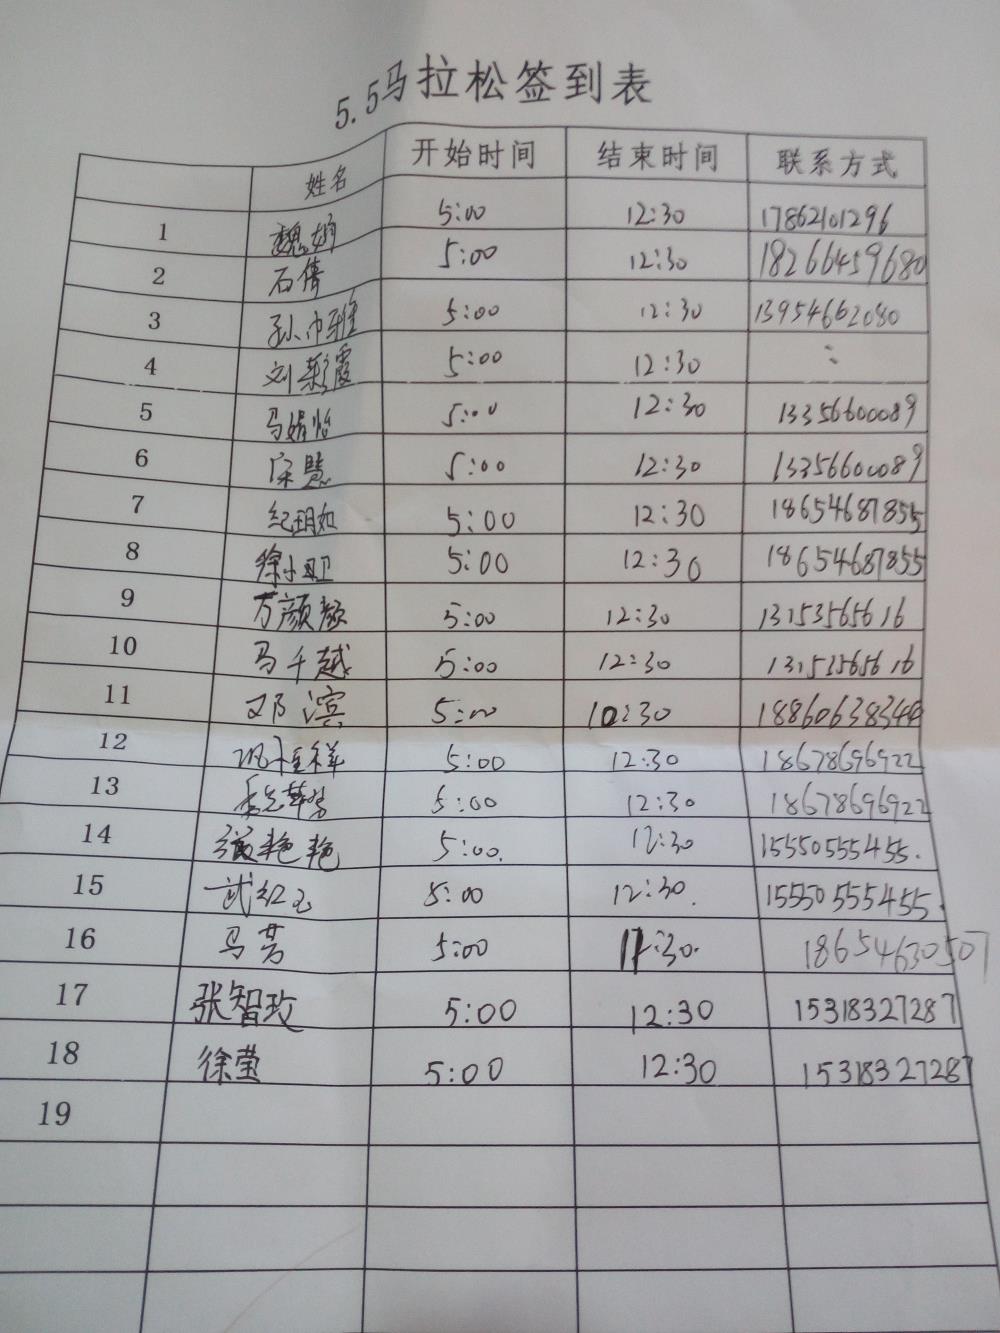 5.5马拉松签到表
姓名 开始时间 结束时间 联系方式
1 魏娟 5:00 12:30 17862101296
2 石倩 5:00 12:30 18266459680
3 孙巾雅 5:00 12:30 13954662080
4 刘彩霞 5:00 12:30
5 马娟怡 5:00 12:30 13356600089
6 宋慧 5:00 12:30 13356600089
7 纪玥如 5:00 12:30 18654687855
8 徐小卫 5:00 12:30 18654687855
9 万颜颜 5:00 12:30 13153565616
10 马千越 5:00 12:30 13153565616
11 邓滨 5:00 10:30 18860638344
12 5:00 12:30 18678696922
13 5:00 12:30 18678696922
14 张艳艳 5:00. 12:30 15550555455.
15 武红玉 5:00 12:30. 15550555455.
16 马芳 5:00 :30. 18654630507
17 张智玫 5:00 12:30 15318327287
18 徐莹 5:00 12:30 15318327287
19